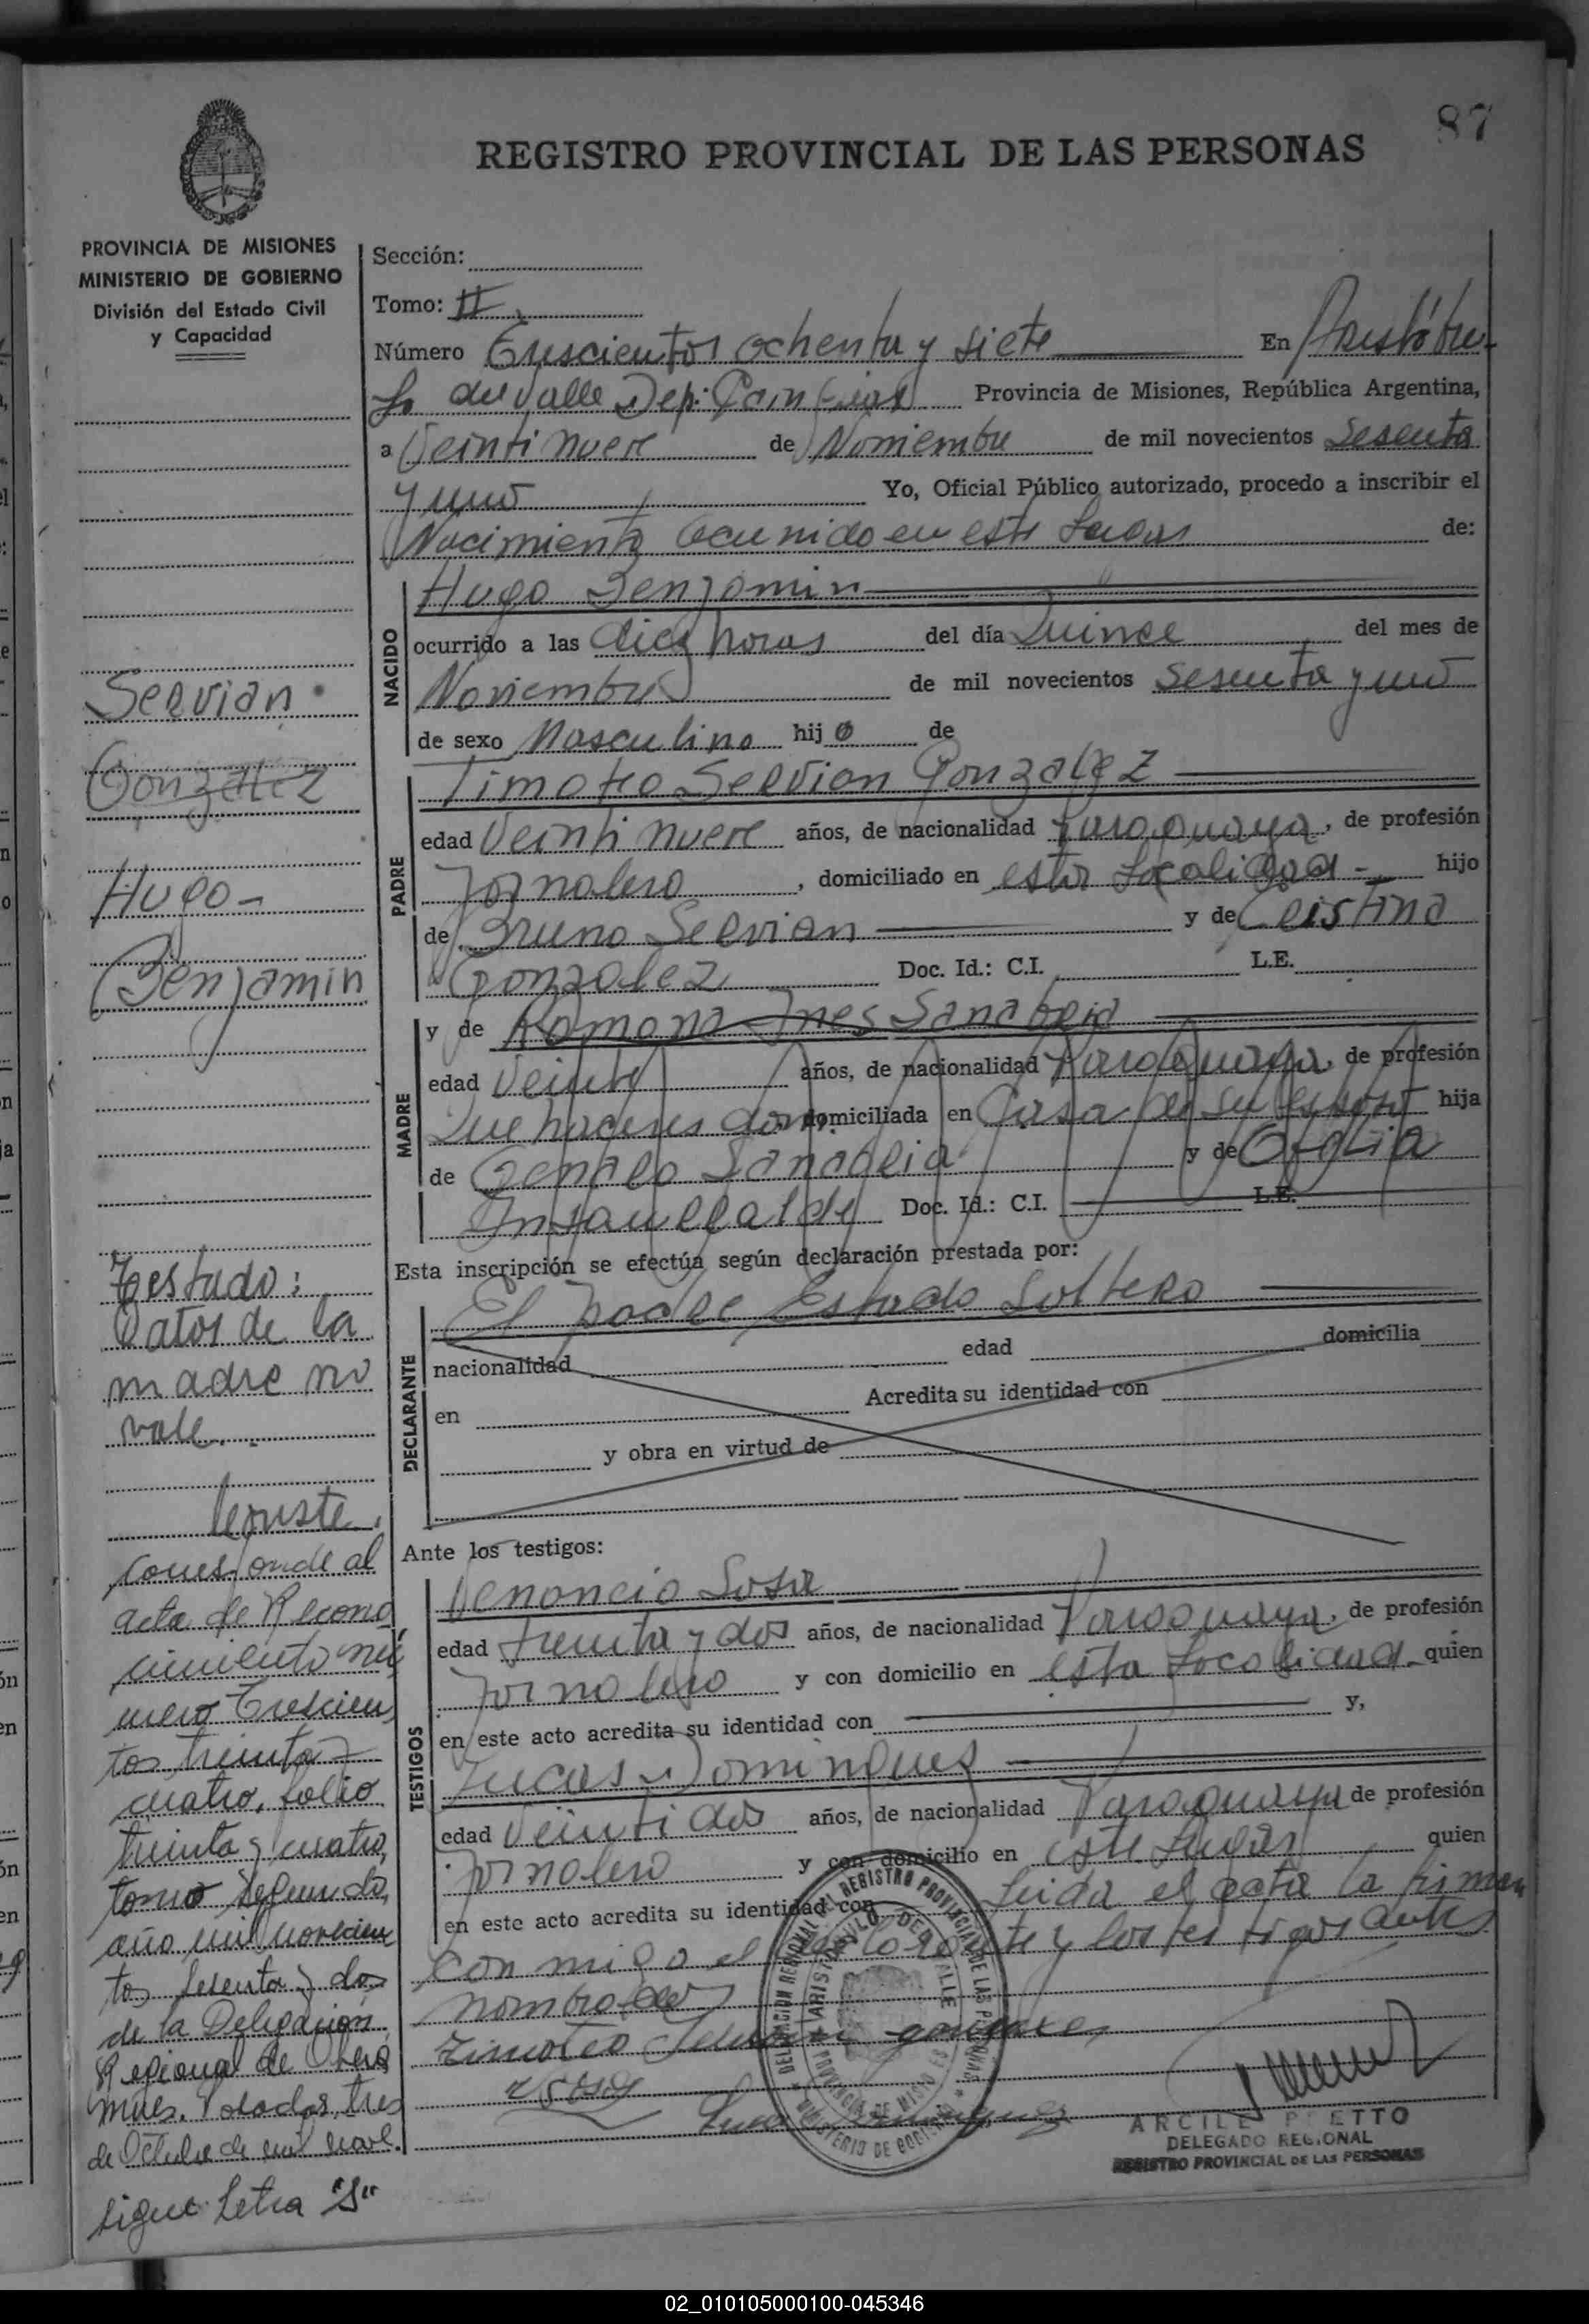 87
REGISTRO PROVINCIAL DE LAS PERSONAS
PROVINCIA DE MISIONES
MINISTERIO DE GOBIERNO
División del Estado Civil
y Capacidad
Servian
Gonzalez
Hugo-
Benjamin
Testado:
Datos de la
madre no
vale.
Conste,
corresponde al
acta de Recono
cimiento nú
mero Trescien
tos treinta y
cuatro, folio
treinta y cuatro,
tomo segundo,
año mil novecien
tos sesenta y dos
de la Delegación
Regional de Obera
mnes. Posadas, tres
de Octubre de mil nove.
sigue Letra "S"
Sección:
Tomo: II
Número Trescientos ochenta y siete En Aristóbu-
lo del Valle Dep: Cainguas Provincia de Misiones, República Argentina,
a Veinti nueve de Noviembre de mil novecientos Sesenta
y uno Yo, Oficial Público autorizado, procedo a inscribir el
Nacimiento Ocurrido en este Lugar de:
NACIDO
Hugo Benjamin
ocurrido a las diez horas del día Quince del mes de
Noviembre de mil novecientos sesenta y uno
de sexo Masculino hijo de
PADRE
Timoteo Servian Gonzalez
edad Veinti nueve años, de nacionalidad Paraguaya, de profesión
Jornalero, domiciliado en esta Localidad - hijo
de Bruno Servian y de Cristina
Gonzalez Doc. Id.: C.I. L.E.
MADRE
y de Ramona Ines Sanabria
edad Veinte años, de nacionalidad Paraguaya, de profesión
Que haceres dom. domiciliada en Casa de su esposo hija
de Genaro Sanabria y de Ofelia
Insaurralde Doc. Id.: C.I. L.E.
Esta inscripción se efectúa según declaración prestada por:
DECLARANTE
El padre Estado Soltero
nacionalidad edad domicilia
en Acredita su identidad con
y obra en virtud de
Ante los testigos:
TESTIGOS
Venancio Sosa
edad treinta y dos años, de nacionalidad Paraguaya, de profesión
Jornalero y con domicilio en esta Localidad quien
en este acto acredita su identidad con y,
Lucas Dominguez
edad Veinti dos años, de nacionalidad Paraguaya de profesión
Jornalero y con domicilio en este Lugar quien
en este acto acredita su identidad con Leida el acta la firman
con migo el declarante y los testigos antes
nombrados
Timoteo Servian gonzalez
Lucas Dominguez
DELEGACION REGIONAL DEL REGISTRO PROVINCIAL DE LAS PERSONAS
ARISTOBULO DEL VALLE
PROVINCIA DE MISIONES
MINISTERIO DE GOBIERNO
DELEGADO REGIONAL
REGISTRO PROVINCIAL DE LAS PERSONAS
02_010105000100-045346